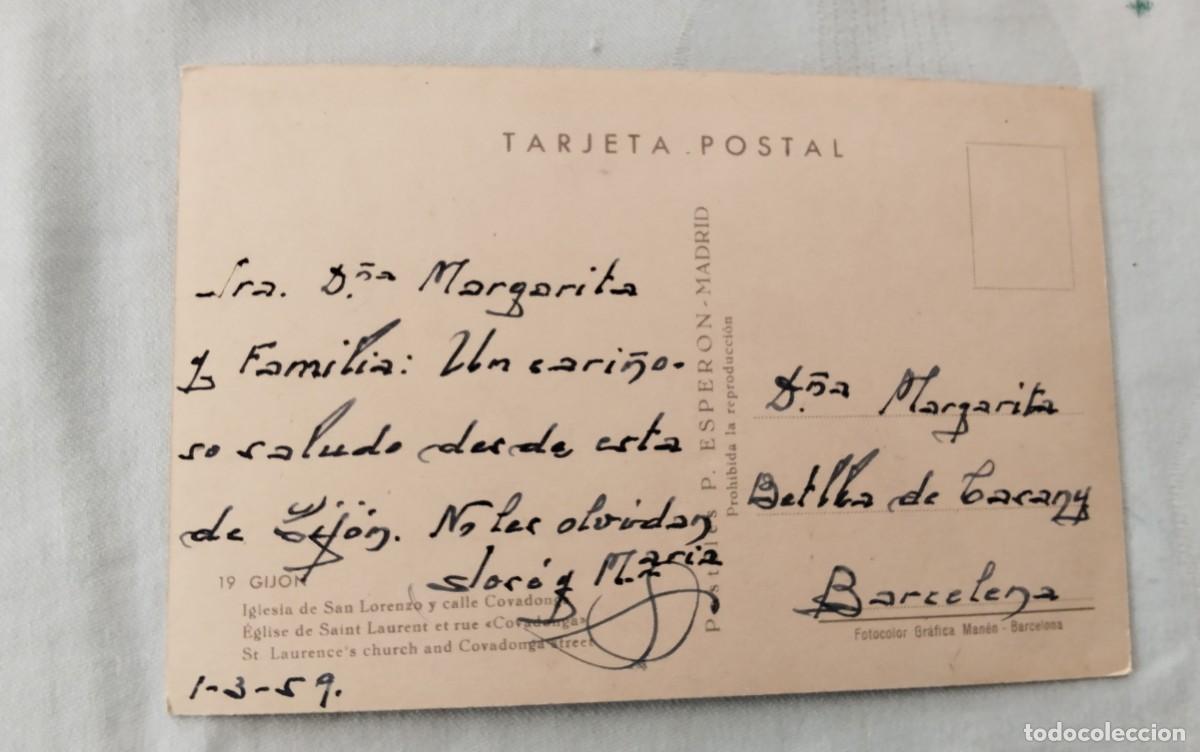 TARJETA POSTAL
Sra. D.ña Margarita
y Familia: Un cariño-
so saludo desde esta
de Gijón. No les olvidan
José y M.ª María
19 GIJON
Iglesia de San Lorenzo y calle Covadonga
Église de Saint Laurent et rue «Covadonga»
St. Laurence's church and Covadonga street
1-3-59.
Postales P. ESPERON - MADRID
Prohibida la reproducción
D.ña Margarita
Betlla de Casany
Barcelona
Fotocolor Gráfica Manén - Barcelona
todocoleccion